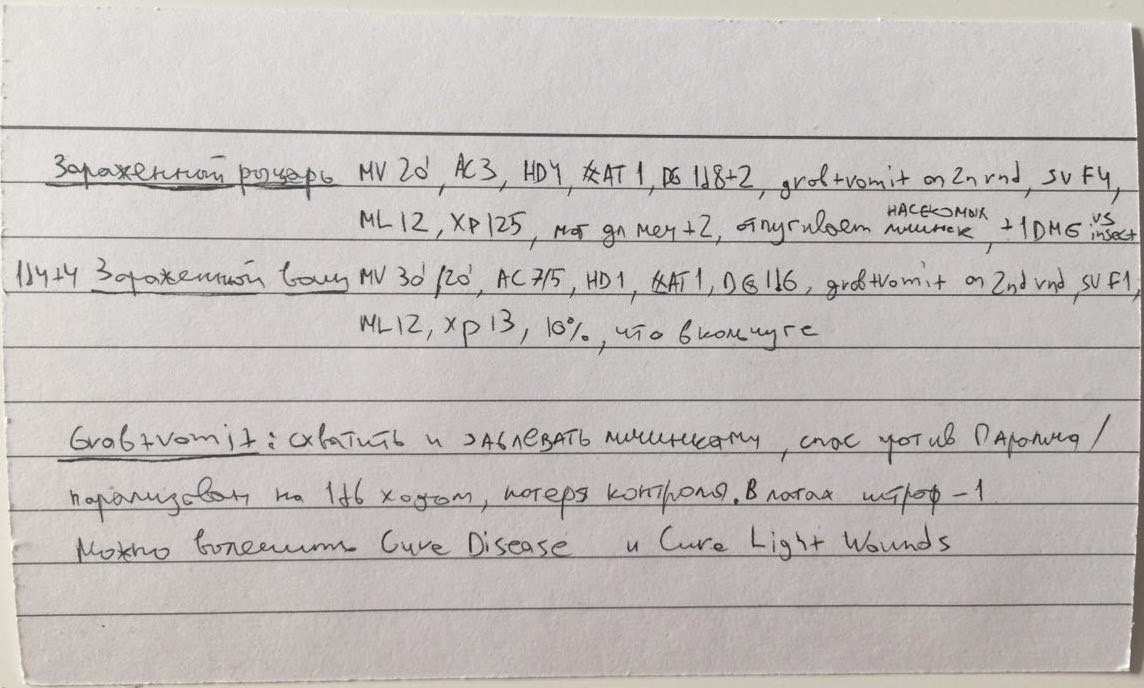 Зараженный рыцарь MV 20', AC3, HD4, #AT1, DG 1d8+2, grab+vomit on 2n rnd, SV F4,
ML12, XP125, маг дл меч+2, отпугивает НАСЕКОМЫХ личинок, +1DMG vs insect
1d4+4 Зараженный воин MV 30'/20', AC 7/5, HD1, #AT1, DG 1d6, grab+vomit on 2nd rnd, SV F1,
ML12, XP13, 10%, что в кольчуге
Grab+vomit: схватить и заблевать личинками, спас против Паралича/
парализован на 1d6 ходов, потеря контроля. В латах штраф -1
Можно вылечить Cure Disease и Cure Light Wounds